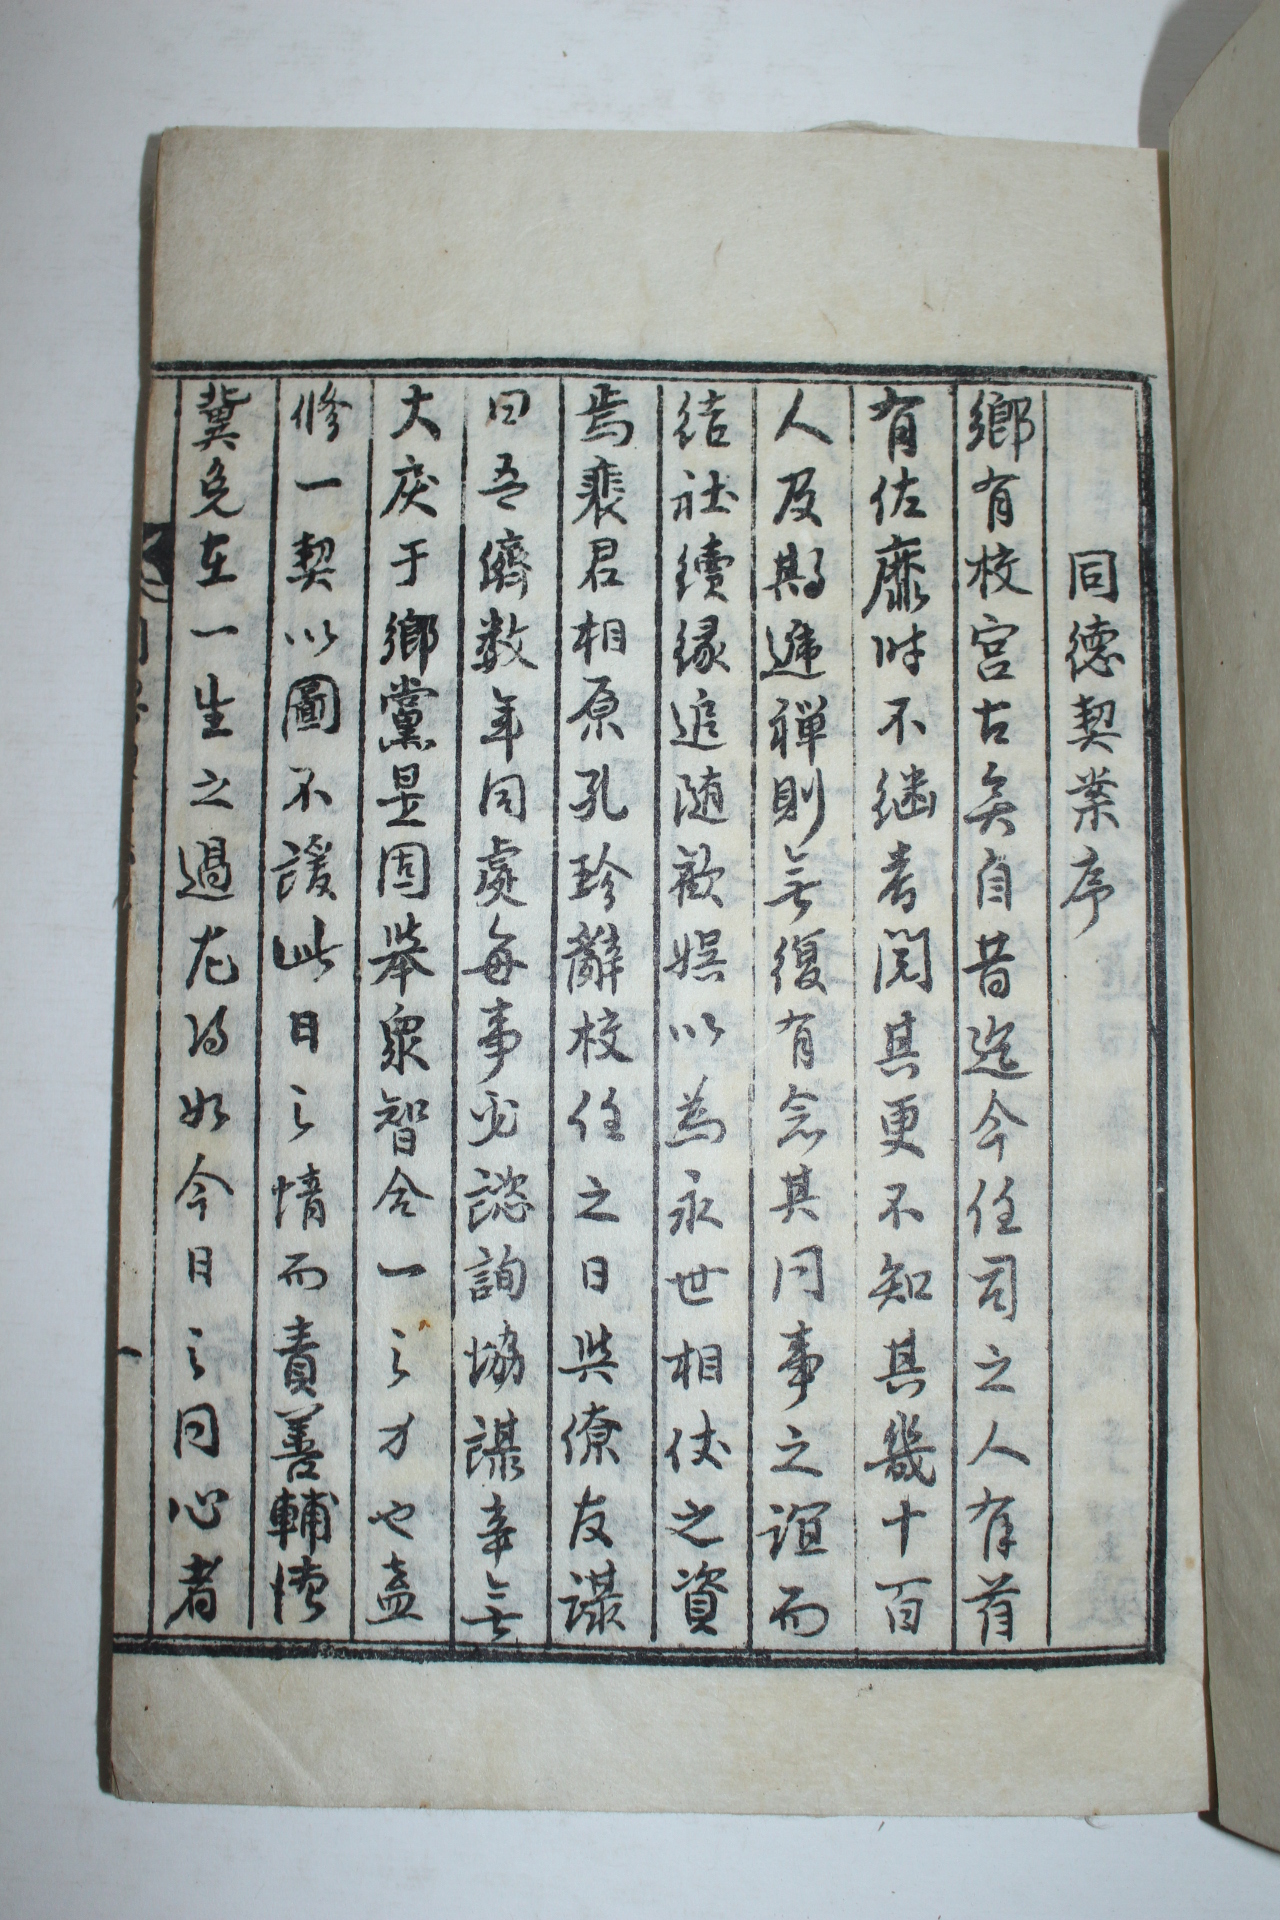 同德契業序
鄉有校宮古矣自昔迄今任司之人有首
有佐靡時不继考閱其更不知其幾十百
人及期遞禅則无復有念其同事之誼而
结社續緣追随歡娯以為永世相仗之資
焉裴君相原孔珍辭校任之日與僚友謀
曰吾儕数年同處每事必諮詢協謀幸无
大戾于鄉黨是固举衆智合一之力也盍
修一契以圖不諼此日之情而責善輔德
冀免在一生之過尤得如今日之同心者